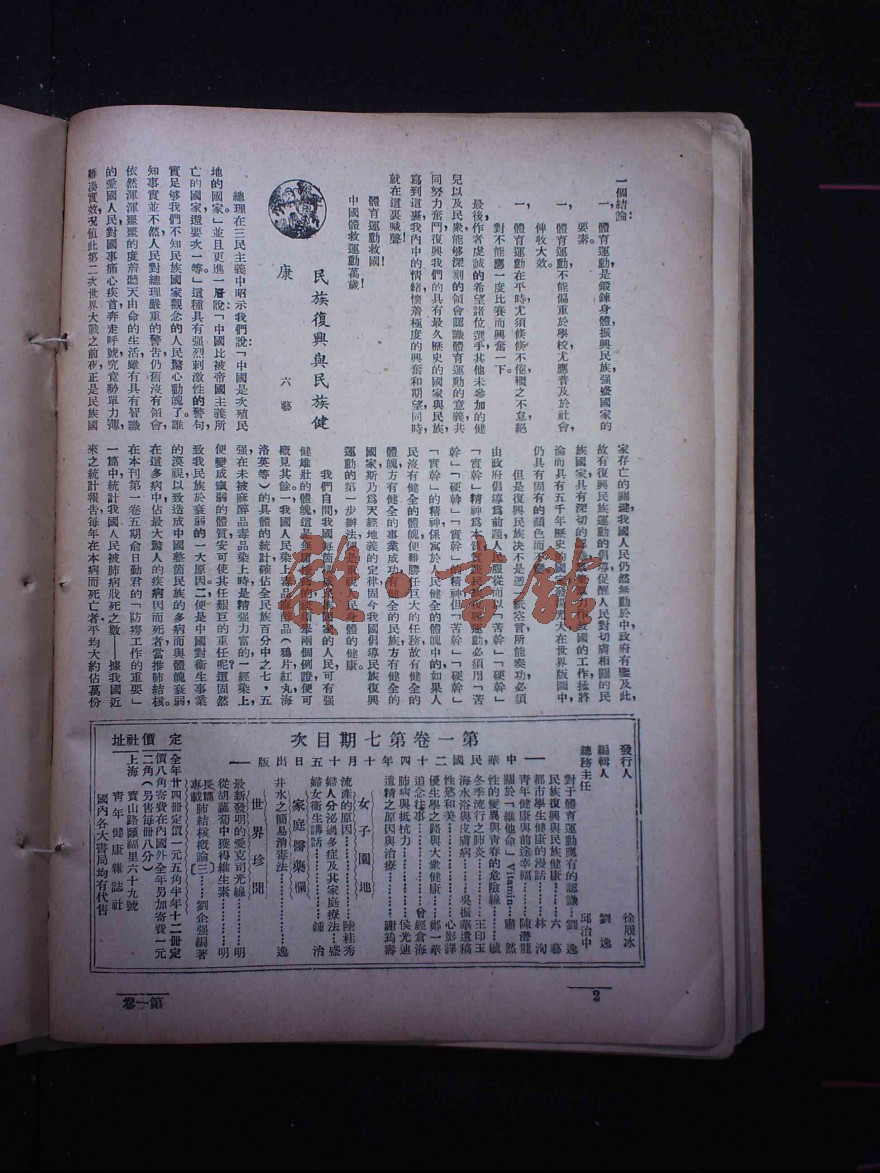 一個結論：
一，體育運動是鍛鍊身體，振興民族，强盛國家的
要素。
一，體育運動，不能偏重於學校，尤應普及於社會，
俾收大效。
一，體育運動在平時尤須修修不倦，糉之不怠，絕
對不能應一度比賽而興奮一下。
最後，作者虔誠的希望諸位選手，其他未參加的健
兒以及民衆，能够深刻的領會認識體育運動的意義，共
同努力奮鬥，復興我們的具有最久歷史的國家與民族，
寫到這裏，我內中的情緒，懷着極度的興奮和期望，同時
就在這裏喊聲：
體育運動救國！
中國體救運動萬歲！
民族復興與民族健
康
六藝
總理在三民主義中昭示我們說：「中國是次殖民
地的國家」並且更進一層說：「中國比被帝國主義所
亡的國家，還要次一等。」這種具有强烈刺激性的警句，
實足够我們不知民族國家觀念的人民，驚心動魄了。誰
知事實並不然，人民對總理嚴重的警告，仍舊沒有領會，
依然渾渾噩噩的度着聽天由命的生活，雖有具有智識
的愛國人民，對國事痛心疾首，奔走呼號，究竟勢單力薄，
難湊實效。況值此第二次世界大戰之前夜，正是民族國
家存亡的關鍵，我國人民仍然無動於中，政府有鑒及此，
故有復興民族運動的倡導，促醒人民對切膚相關的民
淪，而具有五千年歷史的
仍具有固有的顏色而不變
但是復興民族，决不是憑
由政府倡導爲前題，人民服從而以「苦幹」「硬幹」
「實幹」精神爲本
幹」「硬幹」「實幹」的精神，但「苦幹」「硬幹」
「實幹」的精神，保寓於人民健全的體魄中的，如果人
民沒有健全的體魄，便難勝任巨大的任務，故有健全的
體魄，方有健全的事業成功；有健全的民族，方有健全的
國家，斯乃爲天經地義的定律。固今我國倡導民族復興
運動的第一步辦法，便是
民身體的健康。
我們自問，我國每箇
國家的人民，可有强
健雄壯的體魄，這是
舉兩個例證便可
概見其餘，一，我國人民染上毒品
品（鴉片紅丸海
洛英等）的具體的統計，確佔全民族百分中之七，五
强在未被麻醉品毒品染上時，是精强力富的，一經染上，
便變成羸弱的體質，安可使其任艱巨的重任呢？這固然
致我民族於衰弱的一大原因。二，便是中國對衞生事業
的漠視，以致造成中國整箇民族的多病，而與體魄衰弱，
在這多病中，佔最大驚人的疾病因而死者，當推肺結核。
在本刊第一卷五期俞日勤君的「防癆工作的重要」
一篇中，統計我國人民被肺病戕死之數——據我國近
來之統計報告，每年在本病而死亡者，平均大約佔萬份
第一卷第七期目次
發行人　徐屐冰
編輯人　劉逸
總務主任　邱治中
對于體育運動應有的認識…劉逸
民族復興與民族健康……六藝
都市學生健康的漫話……林洵
青年健康與前途幸福……陳潛龍
關於「維他命」Vitamin…購然
性的變異與青春的危險線……毓
冬季流行之肺炎……王印玉
海水浴與皮膚病……吳振華遺稿
性慾和美……心影譯
優生學之路與大衆健康……鄭一華
追念往事……曾經倉海
肺病與抵抗力……侯光迪
遺精之原因與治療……謝筠壽
女子園地
流產的原因……陸桂秀
婦人分泌過多症及其家庭療法…盛
婦女衞生講話……鍾治
家庭醫藥欄
井水之簡易消毒法……逸
世界珍聞
最新發明的愛克司光線……明
從胡蘿蔔中獲得維生素……明
長篇專載　肺結核概論〔三〕……劉企强編著
中華民國二十四年十月十五日出版
定價
全年廿四册定價一元五角，半年十二册定
價八角，寄費在內，國外全年另加寄費一元
二角（另售每册八分）
社址
上海　寶山路頤福里六十九號
青年健康雜誌社
國內各大書局均有代售
2
第一卷
雜·書館